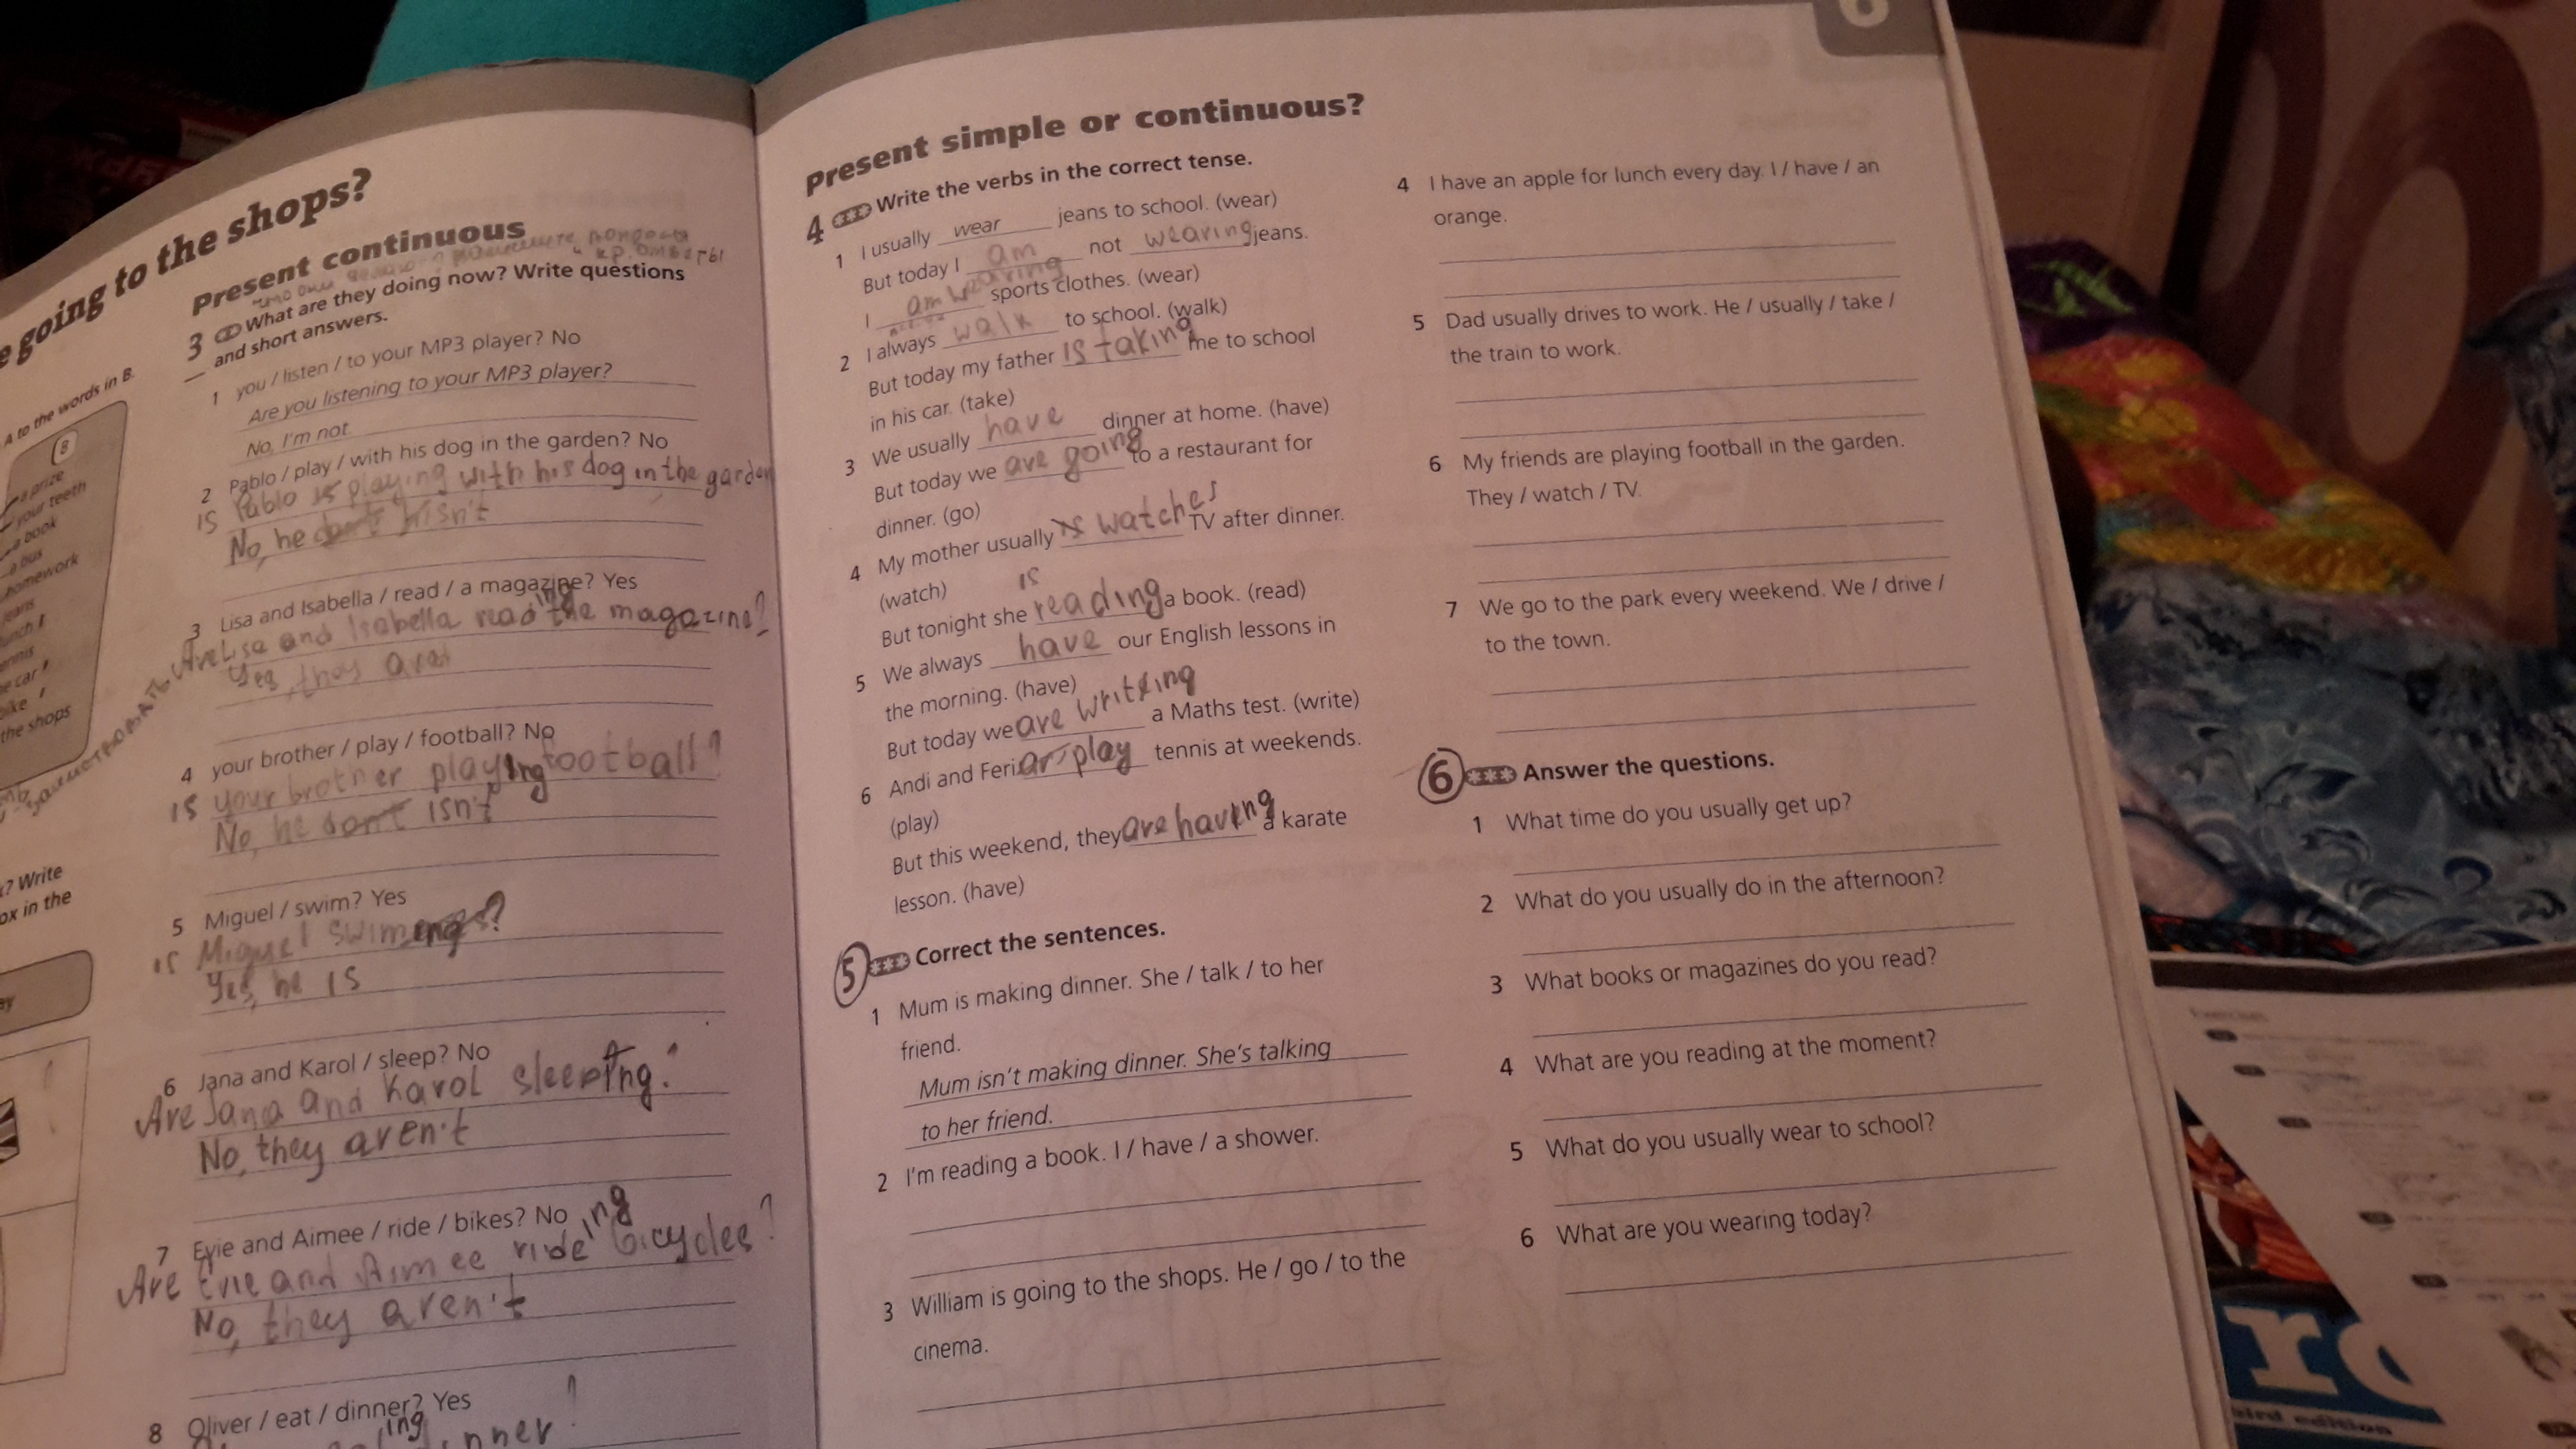 going to the shops?
A to the words in B.
B
a prize
your teeth
a book
a bus
homework
jeans
lunch
tennis
car
bike
the shops
? Write
ox in the
Present continuous
3 What are they doing now? Write questions
and short answers.
1 you / listen / to your MP3 player? No
Are you listening to your MP3 player?
No, I'm not
2 Pablo / play / with his dog in the garden? No
IS Pablo is playing with his dog in the garden
No, he don't isn't
3 Lisa and Isabella / read / a magazine? Yes
Are Lisa and Isabella reading the magazine?
Yes, they are
4 your brother / play / football? No
IS your brother playing football?
No, he don't isn't
5 Miguel / swim? Yes
is Miguel swiming?
Yes, he is
6 Jana and Karol / sleep? No
Are Jana and Karol sleeping?
No, they aren't
7 Evie and Aimee / ride / bikes? No
Are Evie and Aimee rideing bicycles?
No, they aren't
8 Oliver / eat / dinner? Yes
ing dinner?
6
Present simple or continuous?
4 *** Write the verbs in the correct tense.
1 I usually wear jeans to school. (wear)
But today I am not wearing jeans.
I am wearing sports clothes. (wear)
2 I always walk to school. (walk)
But today my father is taking me to school
in his car. (take)
3 We usually have dinner at home. (have)
But today we are going to a restaurant for
dinner. (go)
4 My mother usually is watches TV after dinner.
(watch)
But tonight she is reading a book. (read)
5 We always have our English lessons in
the morning. (have)
But today we are writing a Maths test. (write)
6 Andi and Feri ar play tennis at weekends.
(play)
But this weekend, they are having a karate
lesson. (have)
5 *** Correct the sentences.
1 Mum is making dinner. She / talk / to her
friend.
Mum isn't making dinner. She's talking
to her friend.
2 I'm reading a book. I / have / a shower.
3 William is going to the shops. He / go / to the
cinema.
4 I have an apple for lunch every day. I / have / an
orange.
5 Dad usually drives to work. He / usually / take /
the train to work.
6 My friends are playing football in the garden.
They / watch / TV.
7 We go to the park every weekend. We / drive /
to the town.
6 *** Answer the questions.
1 What time do you usually get up?
2 What do you usually do in the afternoon?
3 What books or magazines do you read?
4 What are you reading at the moment?
5 What do you usually wear to school?
6 What are you wearing today?
third edition